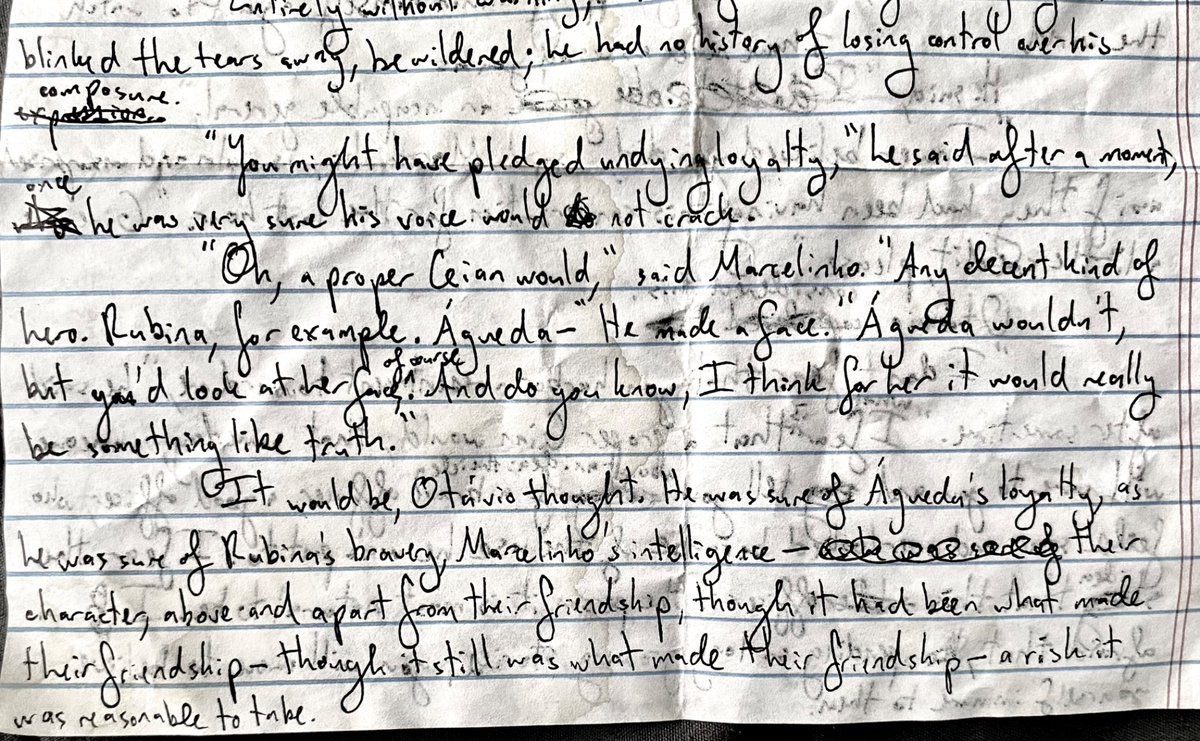 entirely without warning,
blinked the tears away, bewildered; he had no history of losing control over his
composure.
"You might have pledged undying loyalty," he said after a moment,
once he was very sure his voice would not crack.
"Oh, a proper Ceian would," said Marcelinho. "Any decent kind of
hero. Rubina, for example. Águeda—" He made a face. "Águeda wouldn't,
but you'd look at her face, of course. And do you know, I think for her it would really
be something like truth."
It would be, Otávio thought. He was sure of Águeda's loyalty, as
he was sure of Rubina's bravery, Marcelinho's intelligence — their
character, above and apart from their friendship, though it had been what made
their friendship — though it still was what made their friendship — a risk it
was reasonable to take.